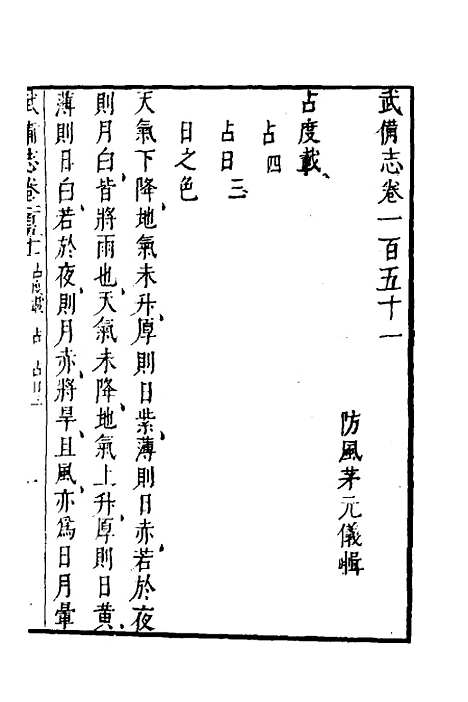 武備志卷一百五十一
防風茅元儀輯
占度載
占四
占日三
日之色
天氣下降地氣未升厚則日紫薄則日赤若於夜
則月白皆將雨也天氣未降地氣上升厚則日黃
薄則日白若於夜則月赤將旱且風亦為日月暈
武備志卷
占度載 占 占日三 一